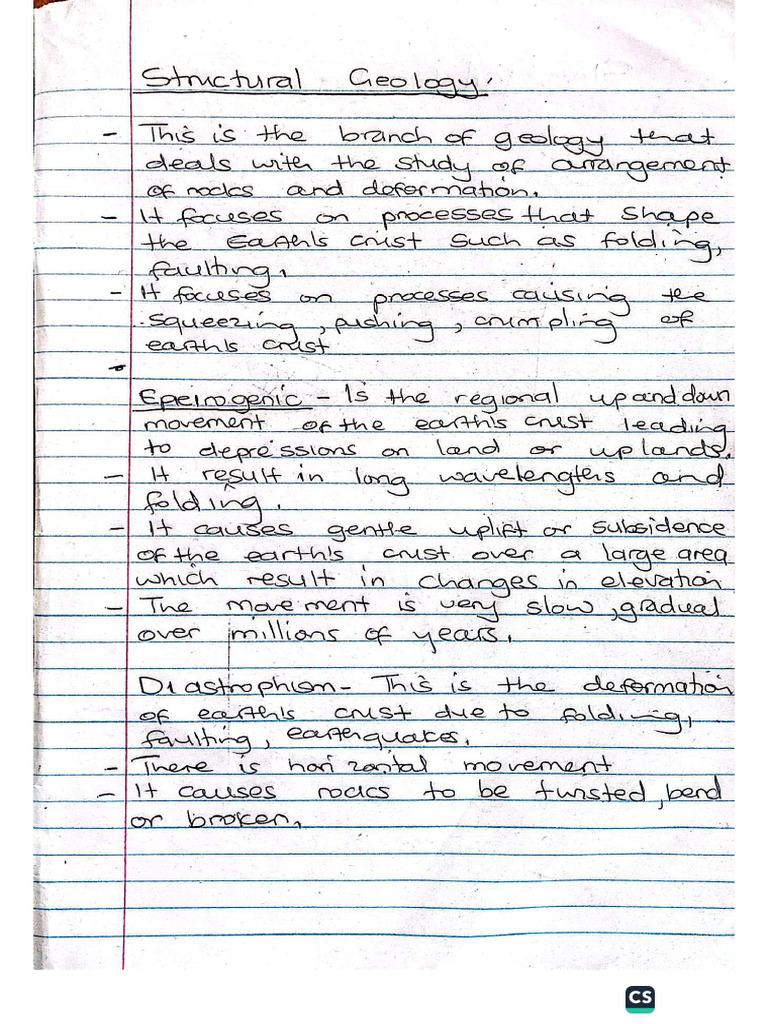 Structural Geology.
- This is the branch of geology that
deals with the study of arrangement
of rocks and deformation.
- It focuses on processes that shape
the Earth's crust such as folding,
faulting.
- It focuses on processes causing the
squeezing, pushing, crumpling of
earth's crust
-
Epeirogenic - Is the regional up and down
movement of the earth's crust leading
to depressions on land or uplands.
- It result in long wavelengths and
folding.
- It causes gentle uplift or subsidence
of the earth's crust over a large area
which result in changes in elevation
- The movement is very slow, gradual
over millions of years.
Diastrophism - This is the deformation
of earth's crust due to folding,
faulting, earthquakes.
- There is horizontal movement
- It causes rocks to be twisted, bend
or broken.
CS